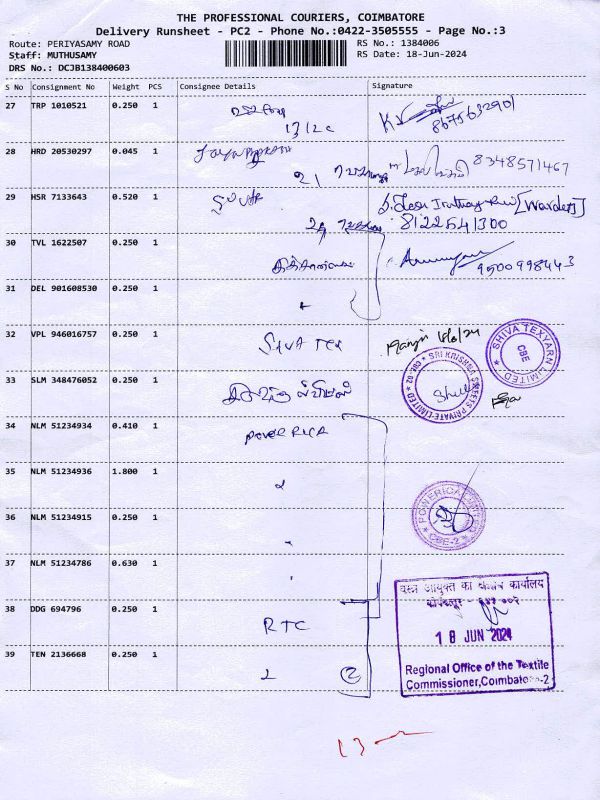 THE PROFESSIONAL COURIERS, COIMBATORE
Delivery Runsheet - PC2 - Phone No.:0422-3505555 - Page No.:3
Route: PERIYASAMY ROAD
RS No.: 1384006
Staff: MUTHUSAMY
RS Date: 18-Jun-2024
DRS No.: DCJB138400603
S No Consignment No Weight PCS Consignee Details Signature
27 TRP 1010521 0.250 1
8675632901
28 HRD 20530297 0.045 1
8348571467
29 HSR 7133643 0.520 1
[Warden]
8122541300
30 TVL 1622507 0.250 1
9500998443
31 DEL 901608530 0.250 1
32 VPL 946016757 0.250 1 SIVA TEX
SHIVA TEXYARN LIMITED
CBE
33 SLM 348476052 0.250 1
SRI KRISHNA SWEETS PRIVATE LIMITED
34 NLM 51234934 0.410 1 POWERICA
35 NLM 51234936 1.800 1
36 NLM 51234915 0.250 1
POWERICA LIMITED
CBE-2
37 NLM 51234786 0.630 1
वस्त्र आयुक्त का क्षेत्रीय कार्यालय
38 DDG 694796 0.250 1 RTC
18 JUN 2024
39 TEN 2136668 0.250 1 2
Regional Office of the Textile
Commissioner,Coimbatore-2
13